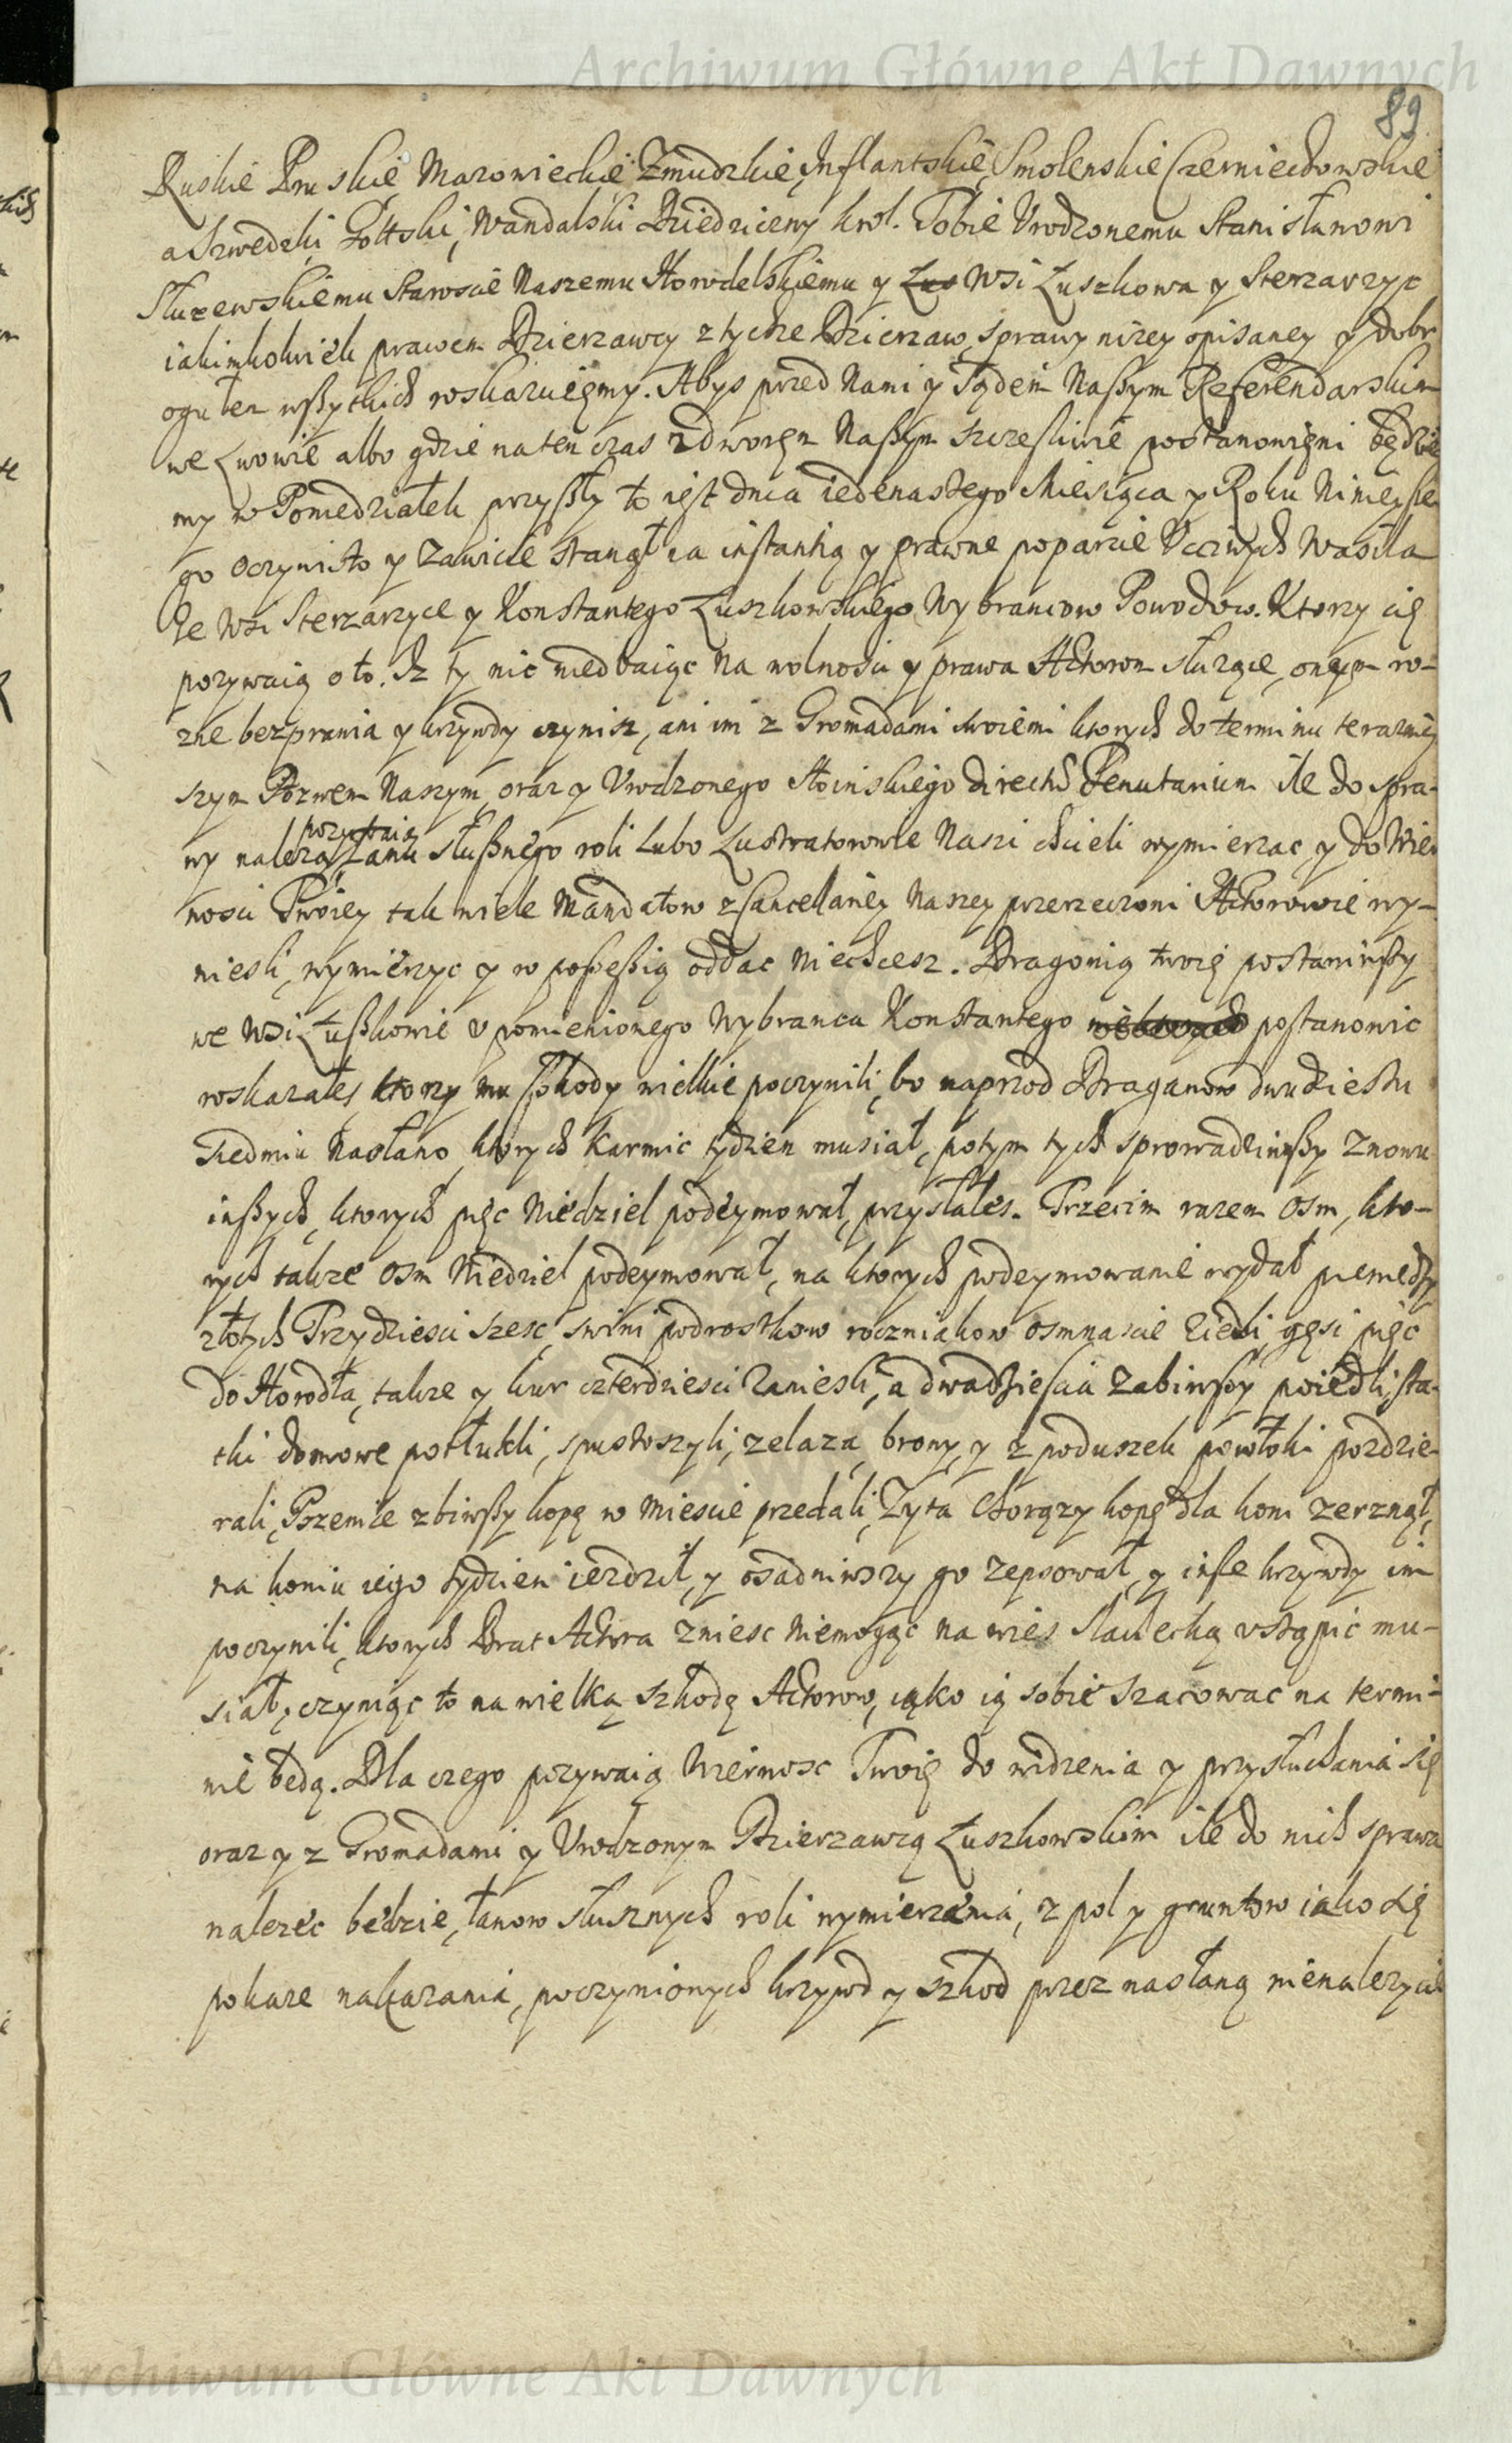 Archiwum Główne Akt Dawnych
89
Ruskie Pruskie Mazowieckie Zmudzkie, Inflantskie, Smolenskie Czerniechowskie
a Szwedzki Gottski, Wandalski Dziedziczny krol. Tobie Vrodzonemu Stanisławowi
Słuzewskiemu Staroscie Naszemu Horodelskiemu y Wsi Łuszkowa y Sterzarzyc
iakimkolwiek prawem Dzierzawcy z tychze Dzierzaw, sprawy nizey opisaney y dobr
ogułem wszytkich roskazuięmy. Abys przed Nami y Sądem Naszym Referendarskim
we Lwowie albo gdzie na ten czas z dworęm Naszym szczesliwie postanowięni będzie
my w Poniedziałek przyszły to iest dnia iedenastego Miesiąca y Roku Ninieysze
go oczywisto y zawicie stanął na instantią y prawne poparcie Vcciwych Wasila
ze Wsi Sterzarzyce y Konstantego Łuszkowskiego Wybrancow Powodow. Ktorzy cię
pozywaią o to. Iz ty nic niedbaiąc na wolnosci y prawa Actorom słuzące, onym ro-
zne bezprawia y krzywdy czynisz, ani im z Gromadami swoiemi ktorych do terminu terazniey
szym Pozwem Naszym, oraz y Vrodzonego Słoinskiego directe Tenutarium ile do spra-
pozywaią
wy nalezą, Łanu słusznego roli lubo Lustratorowie Naszi chcieli wymierzac y do Wier
nosci Twoiey tak wiele Mandatow z Cancellariey Naszey przerzeczoni Actorowie wy-
niesli, wymierzyc y w possessią oddac Niechcesz. Dragonią twoię postawiwszy
we Wsi Łuszkowie v pomienionego Wybranca Konstantego postanowic
roskazałes, ktorzy mu szkody wielkie poczynili, bo naprzod Draganow dwudziestu
Siedmiu Nasłano, ktorych karmic tydzien musiał, potym tych sprowadziwszy znowu
inszych, ktorych pięc Niedziel podeymował, przysłałes. Trzecim razem osm, kto-
rych takze osm Niedziel podeymował, na ktorych podeymowanie wydał pieniedzy
złotych Trzydziesci szesc, swini podrostkow roczniakow osmnascie ziedli, gęsi pięc
do Horodła, takze y kur czterdziesci zaniesli, a dwadziescia zabiwszy poiedli, sta-
tki domowe potłukli, spustoszyli, zelaza, brony, y z poduszek powłoki pozdzie-
rali, Pszenice zbiwszy kopę w Miescie przedali, Zyta Chorązy kopę dla koni zerznął,
na koniu iego tydzien iezdził, y osadniwszy go zepsował, y insze krzywdy im
poczynili, ktorych Brat Actora zniesc Niemogąc na wies slachecką vstąpic mu-
siał, czyniąc to na wielką szkodę Actorow, iąko ią sobie szacowac na termi-
nie będą. Dla czego pozywaią Wiernosc Twoię do widzenia y przysłuchania się
oraz y z Gromadami y Vrodzonym Dzierzawcą Łuszkowskim ile do nich sprawa
nalezec będzie, łanow słusznych roli wymierzenia, z pol y gruntow iako się
pokaze nakazania, poczynionych krzywd y szkod przez nasłaną nienalezycie
Archiwum Główne Akt Dawnych